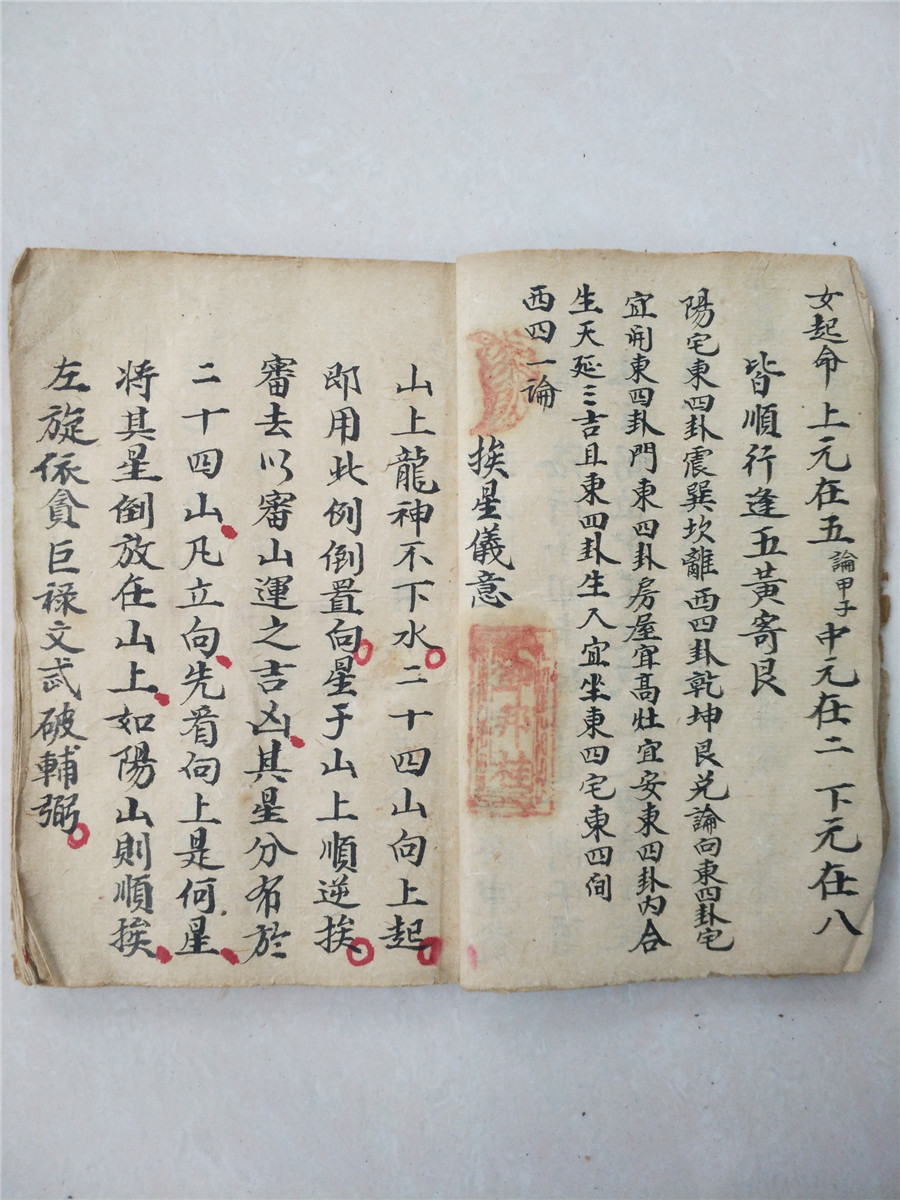 女起命 上元在五 論甲子 中元在二 下元在八
皆順行逢五黃寄艮
陽宅東四卦震巽坎離西四卦乾坤艮兌論向東四卦宅
宜開東四卦門東四卦房屋宜高灶宜安東四卦內合
生天延三吉且東四卦生人宜坐東四宅東四间
西四一論
挨星儀意
山上龍神不下水二十四山向上起
即用此例倒置向星于山上順逆挨
審去以審山運之吉凶其星分布於
二十四山凡立向先看向上是何星
将其星倒放在山上如陽山則順挨
左旋依貪巨祿文武破輔弼